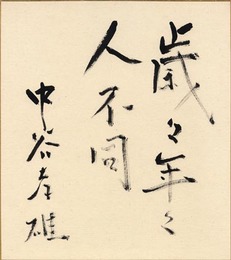 歳々年々
人不同
中谷孝雄